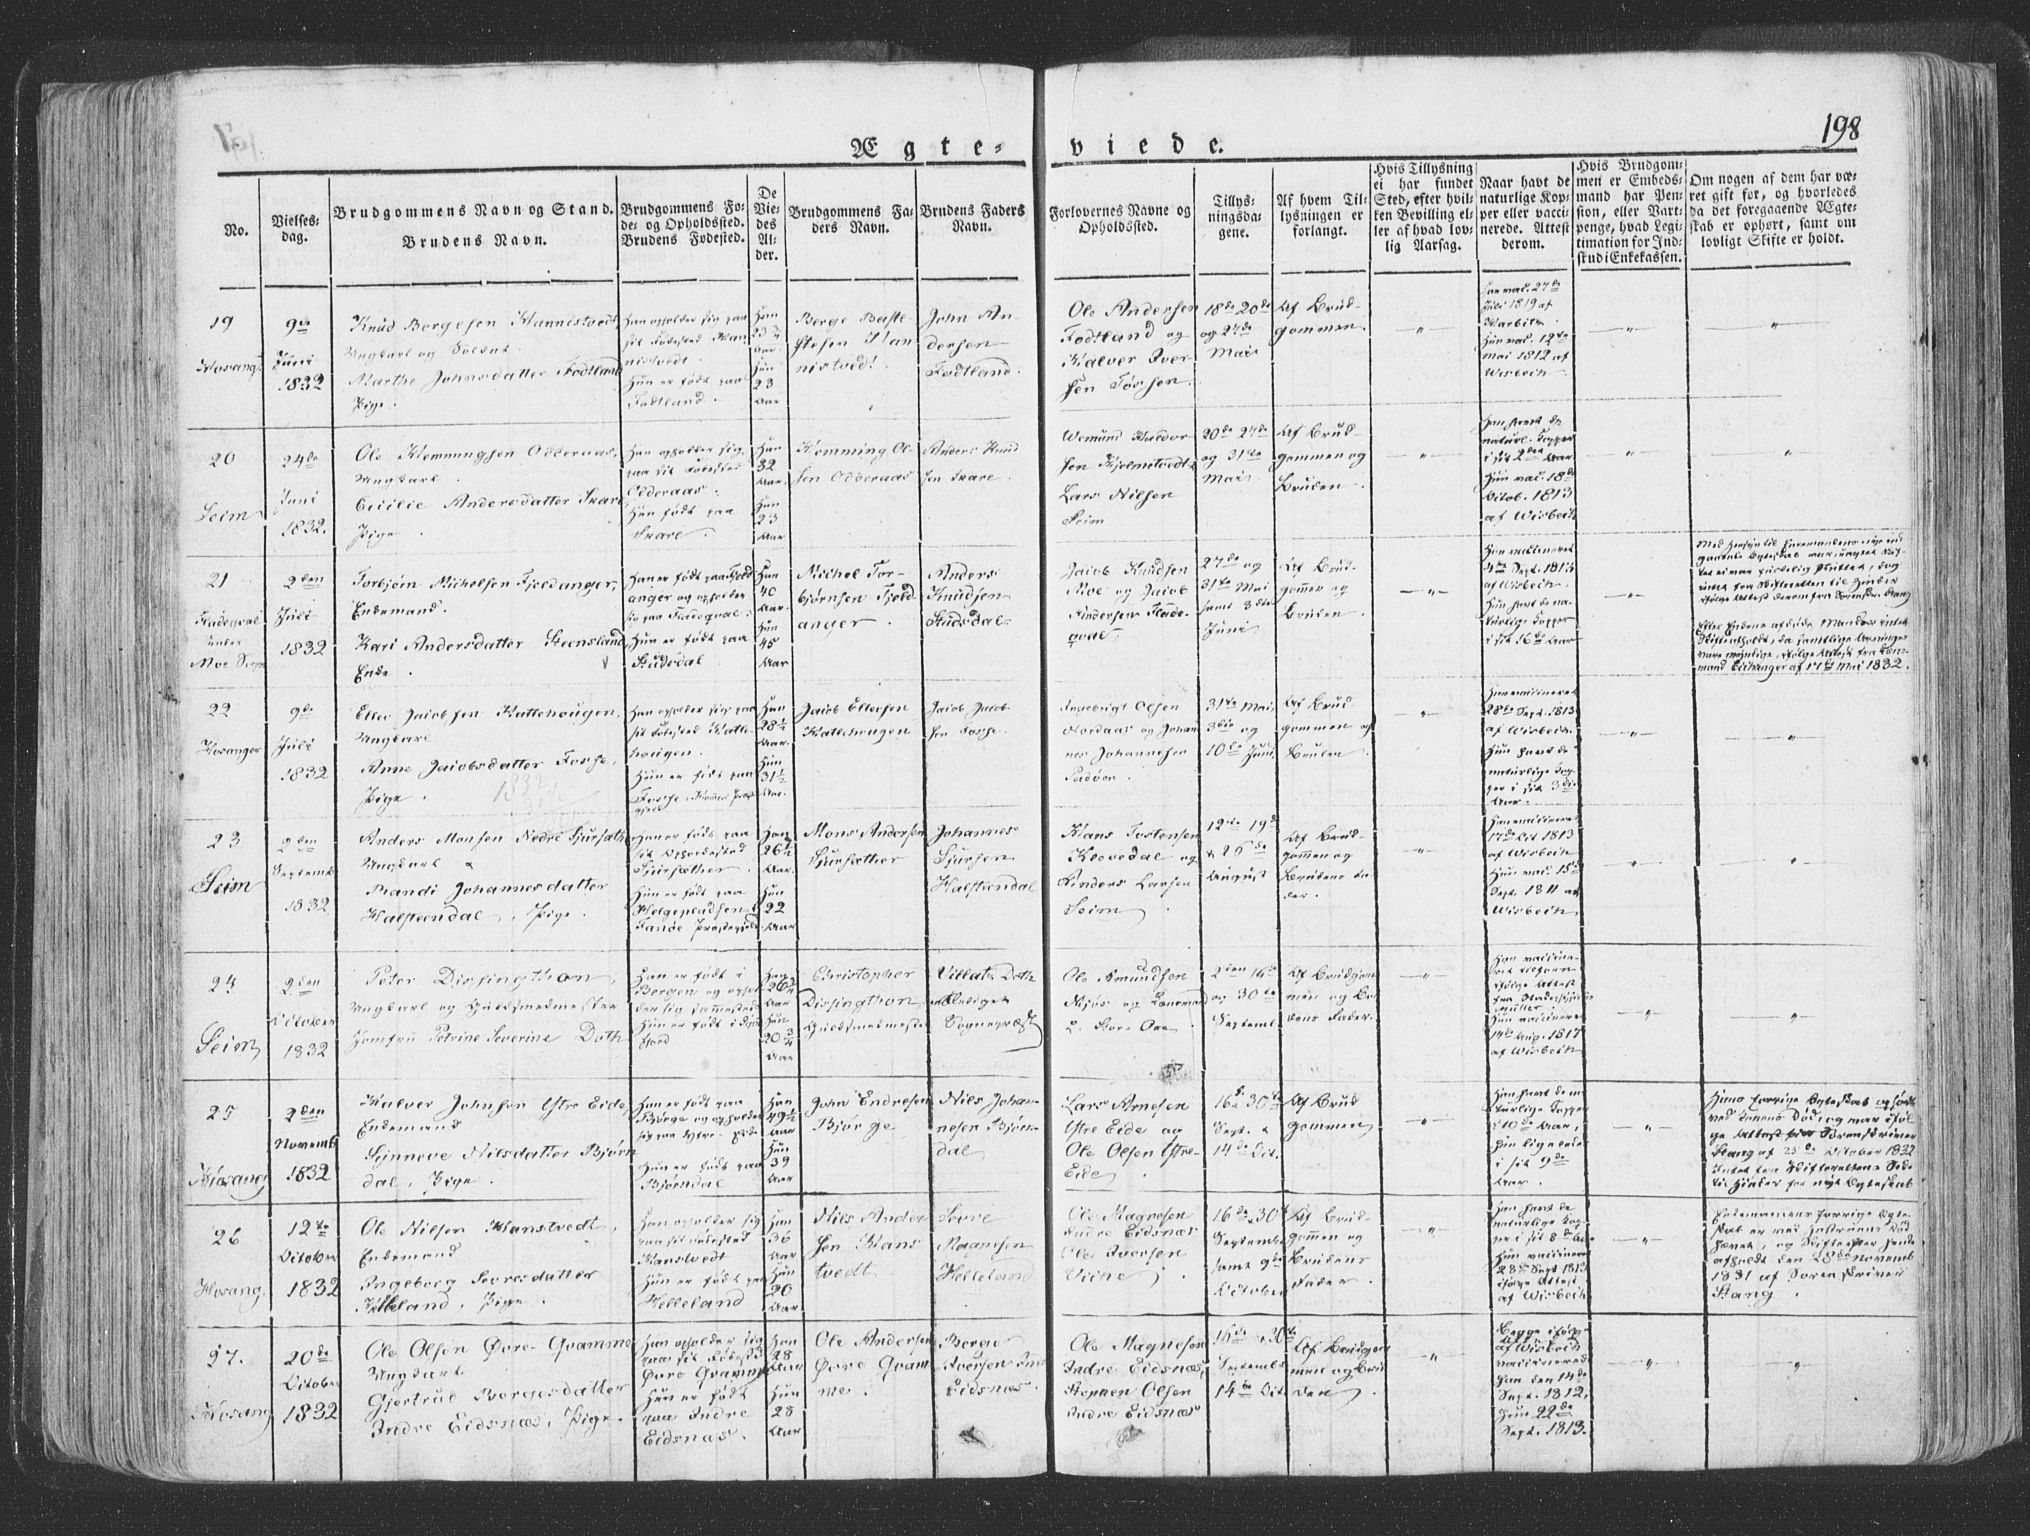 198
Ægte-
viede.
No.
Vielses-
dag.
Brudgommens Navn og Stand.
Brudens Navn.
Brudgommens Fø-
de- og Opholdssted.
Brudens Fødested.
De
Vie-
des
Al-
der.
Brudgommens Fa-
ders Navn.
Brudens Faders
Navn.
Forlovernes Navne og
Opholdssted.
Tillys-
ningsda-
gene.
Af hvem Til-
lysningen er
forlangt.
Hvis Tillysning
ei har fundet
Sted, efter hvil-
ken Bevilling el-
ler af hvad lov-
lig Aarsag.
Naar havt de
naturlige Kop-
per eller vacci-
nerede. Attest
derom.
Hvis Brudgom-
men er Embeds-
mand har Pen-
sion, eller Vart-
penge, hvad Legi-
timation for Ind-
skud i Enkekassen.
Om nogen af dem har væ-
ret gift før, og hvorledes
da det foregaaende Ægte-
skab er ophørt, samt om
lovligt Skifte er holdt.
19
9de
Juni
1832
Knud Borgesen Hannistvedt
Ungkarl og Soldat.
Marthe Johnsdatter Fodtland
Pige.
Han opholder sig paa
sit Fødested Han-
nistvedt.
Hun er født paa
Fodtland.
Han
23 3/4
Aar.
Hun
23
Aar
Børge
Han
nistvedt.
John An-
dersen
Fodtland.
Ole Andersen
Fodtland og
Halver Iver-
sen
18de 20de
og 27de
Mai
Af Brud-
gommen.
Han vac. 27de
Juli 1819 af
Hun vac. 12te
Mai 1812 af
Wisbech
20
Seim
24de
Juni
1832.
Ole Klemmingsen Odderaas
Ungkarl.
Cecilie Andersdatter Svare
Pige.
Han opholder sig
paa sit Fødested
Odderaas.
Hun født paa
Svare.
Han
32
Aar.
Hun
23
Aar
Klemming Ol-
sen Odderaas
Anders Knud
sen Svare.
Wemund Halvor
sen Hjelmtvedt
Lars Nilsen
Seim
20de 27de
og 31te
Mai
Af Brud-
gommen og
Bruden.
Han havt de
naturl. Kopper
i sit 2det Aar
Hun vac. 18de
Octob. 1813
af Wisbech
21
under
Moe Sogn
2den
Juli
1832
Torbjørn Michelsen Fjeldanger,
Enkemand.
Kari Andersdatter Steensland
Enke.
Han er født paa Fjeld
anger og opholder
sig paa
Hun er født paa
Studsdal
Han
40
Aar.
Hun
45
Aar
Michel Tor-
bjørnsen Fjeld
anger.
Anders
Knudsen
Studsdal
Jacob Knudsen
Moe og Jacob
Andersen
27de og
31te Mai
samt 3die
Juni
Af Brud-
gommen og
Bruden
Han vaccineret
4de Sept. 1813
af Wisbech.
Hun havt de na-
turlige Kopper
i sit 16de Aar
mand Eichanger af 17de Mai 1832.
22
Hosanger
9de
Juli
1832
Eller Jacobsen Kattehougen,
Ungkarl
Anne Jacobsdatter Fosse,
Pige.
Han opholder sig paa
sit Fødested Katte
hougen.
Hun er født paa
Han
28 1/2
Aar.
Hun
31 1/2
Aar.
Jacob Ellersen
Kattehougen
Jacob Jacob-
sen Fosse.
Ingebrigt Olsen
Nordaas og Johan
nes Johannesen
31te Mai,
3die og
10de Juni
Af Brud
gommen og
Bruden
Han vaccineret
28de Sept. 1813
af Wisbech.
Hun havt de
naturlige Kop-
per i sit 3die
Aar.
23
Seim
2den
Septemb
1832
Anders Monsen Nedre Sjursæther
Ungkarl
Brandi Johannesdatter
Halsteendal, Pige.
Han er født paa
sit Opholdssted
Sjursæther.
Hun er født paa
Han
26 1/2
Aar.
Hun
22
Aar
Mons Andersen
Sjursæther
Johannes
Sjursen
Halsteendal
Hans Tostensen
Kløvedal og
Anders Larsen
Seim
12te 19de
& 26de
August
Af Brud-
gommen og
Brudens Fa-
der.
Han vaccineret
17de Oct 1813
af Wisbech
Hun vac. 15de
Sept. 1811 af
Wisbech
24
Seim
2den
October
1832
Peter Dissingthon,
Ungkarl og Guldsmedmester
Jomfru Petrine Severine Doth
Han er født i
Bergen og ophol-
der sig sammesteds
Hun er født i
Han
26 3/4
Aar
Hun
20 3/4
Aar
Christopher
Dissingthon
Guldsmedmester
Villats Doth
Sogneprest
Ole Amundsen
Mjøs og Lensmand
2den 16de
og 30te
Septemb.
Af Brudgom
men og Bru
dens Fader.
Hun vaccineret
14de Aug. 1817
af Wisbech
25
Hosang
2den
Novemb
1832
Halver Johnsen Ystre Eide,
Enkemand
Synneve Nilsdatter Bjørn
dal, Pige.
Han er født paa
Bjørge og opholder
sig paa Ystre Eide
Hun er født paa
Bjørndal
Han
49 1/2
Aar
Hun
39
Aar
John Endresen
Bjørge
Nils Johan-
nesen Bjørn-
dal
Lars Arnesen
Ystre Eide og
Ole Olsen Ystre
Eide.
16de 30te
Sept. &
14de Oct.
Af Brud
gommen
Han havt de na-
turlige Kopper
i 10de Aar,
Hun ligeledes
i sit 9de
Aar.
Hans forrige Ægteskab ophørte
ved Konens Død, og var ifølge
Attest fra Sorenskriver
Stang af 25de October 1832
Intet fra Skifterettens Side
til Hinder for nyt Ægteskab
26
Hosang.
12te
October
1832
Ole Nilsen Hanstvedt,
Enkemand
Ingeborg Sevresdatter
Helleland, Pige.
Han opholder sig
paa sit Fødested
Hanstvedt
Hun er født paa
Helleland
Han
36
Aar
Hun
20
Aar
Nils Ander
sen Hans
tvedt
Sevre
Maansen
Helleland
Ole Magnesen
Indre Eidsnæs
Ole Iversen
16de & 30te
September
samt 9de
October
Af Brud-
gommen og
Brudens
Fader
Han havt de
naturlige Kop-
per i sit 8de Aar
Hun vaccineret
28de Sept 1813
ifølge Attest
af Wisbech
Enkemandens forrige Ægte-
skab er ved Hustruens Død
hævet, og Skifte efter hende
afholdt den 28de Novemb
1831 af Sorenskriver
Stang.
27.
Hosang
20de
October
1832
Ole Olsen Øvre-Qvamme
Ungkarl
Gjertrud Borgesdatter
Indre Eidsnæs, Pige.
Han opholder sig
paa sit Fødested
Øvre Qvamme
Hun er født
paa Indre
Eidsnæs.
Han
28
Aar
Hun
28
Aar
Ole Andersen
Øvre Qvam
me.
Borge
Iversen Ind
Eidsnæs.
Ole Magnesen
Indre Eidsnæs,
Steffen Olsen
Indre Eidsnæs
16de & 30te
Septemb
14de Oct.
Af Brudgom
men og Bru
den
Begge ifølge
Att. af Wisbech
vaccinerede
Han den 14de
Sept. 1812,
Hun 22de
Sept. 1813.